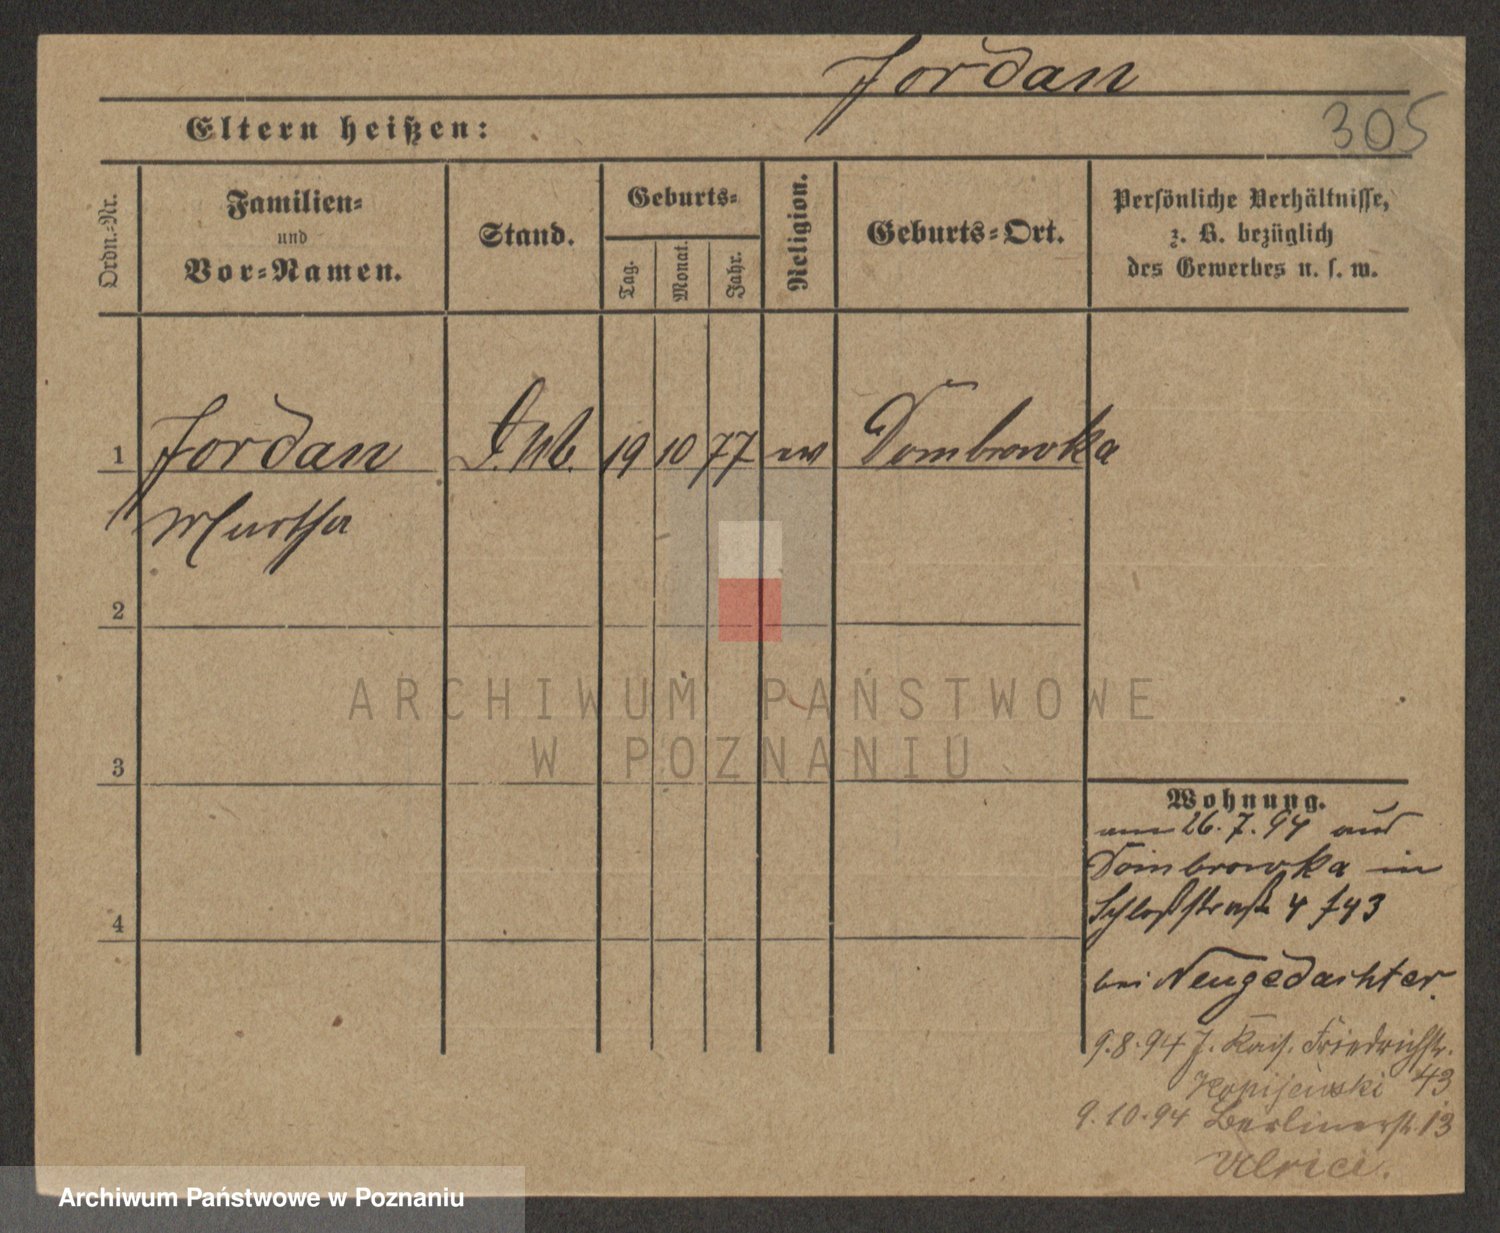 Jordan
305
Eltern heißen:
Ordn.-Nr.
Familien-
und
Vor-Namen.
Stand.
Geburts-
Tag.
Monat.
Jahr.
Religion.
Geburts-Ort.
Persönliche Verhältnisse,
z. B. bezüglich
des Gewerbes u. s. w.
1 Jordan 19 10 77 ev Dombrowka
Martha
2
3
4
ARCHIWUM PAŃSTWOWE
W POZNANIU
Wohnung.
am 26.7.94 aus
Dombrowka in
Schloßstraße 4 f 43
bei Neugedachter.
9.8.94 J. Kais. Friedrichstr.
Kopijewski 43
9.10.94 Berlinerstr. 13
Ulrici.
Archiwum Państwowe w Poznaniu